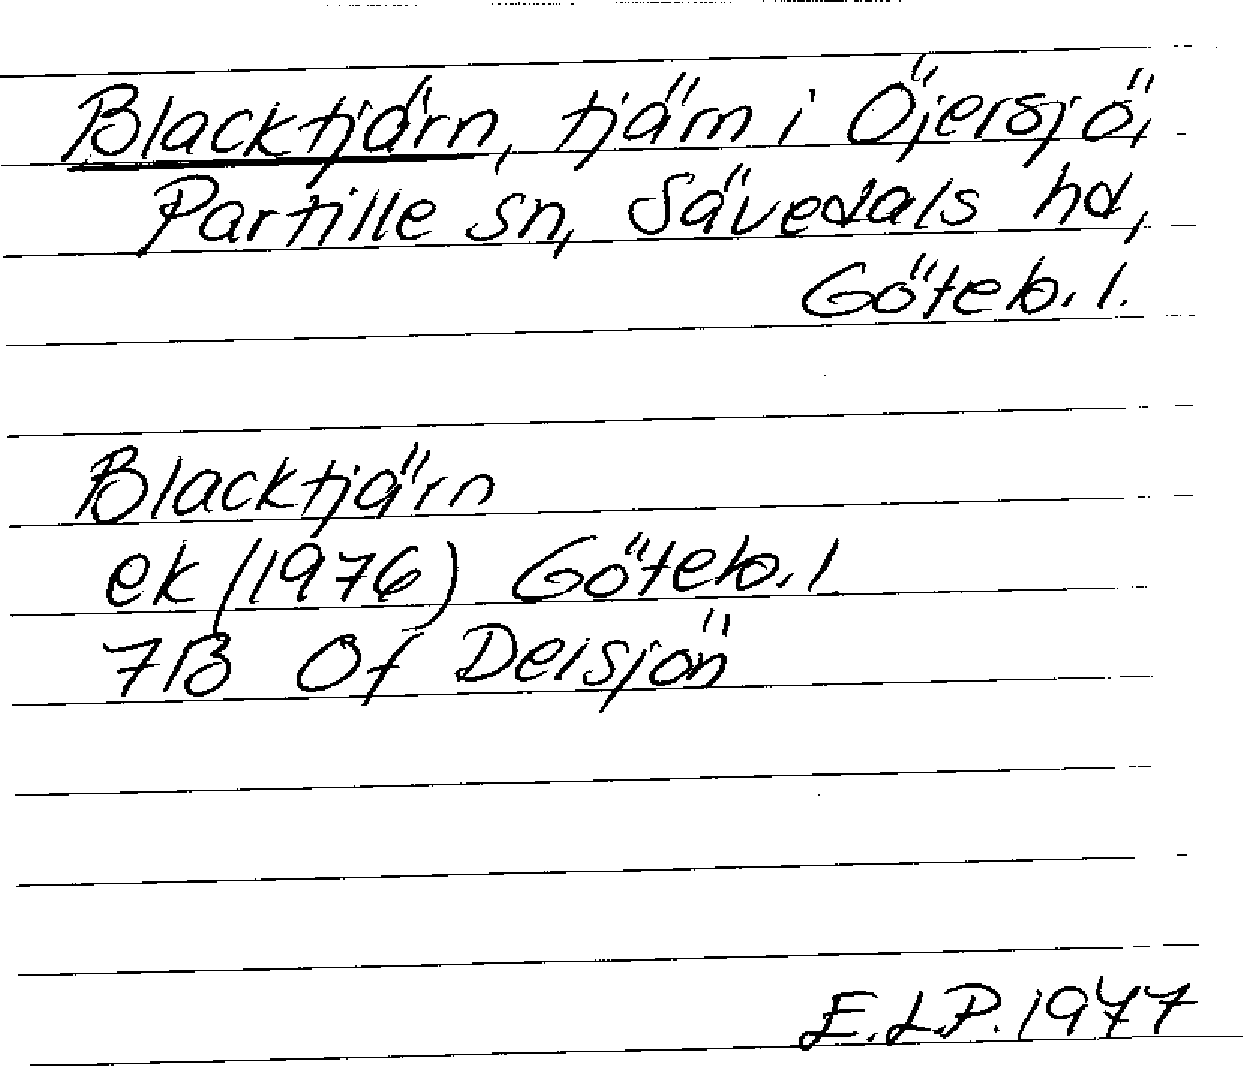 Blacktjärn, tjärn i Öjersjö,
Partille sn, Sävedals hd,
Göteb. l.
Blacktjärn
ek (1976) Göteb. l
7B 0f Delsjön
E.L.P. 1977